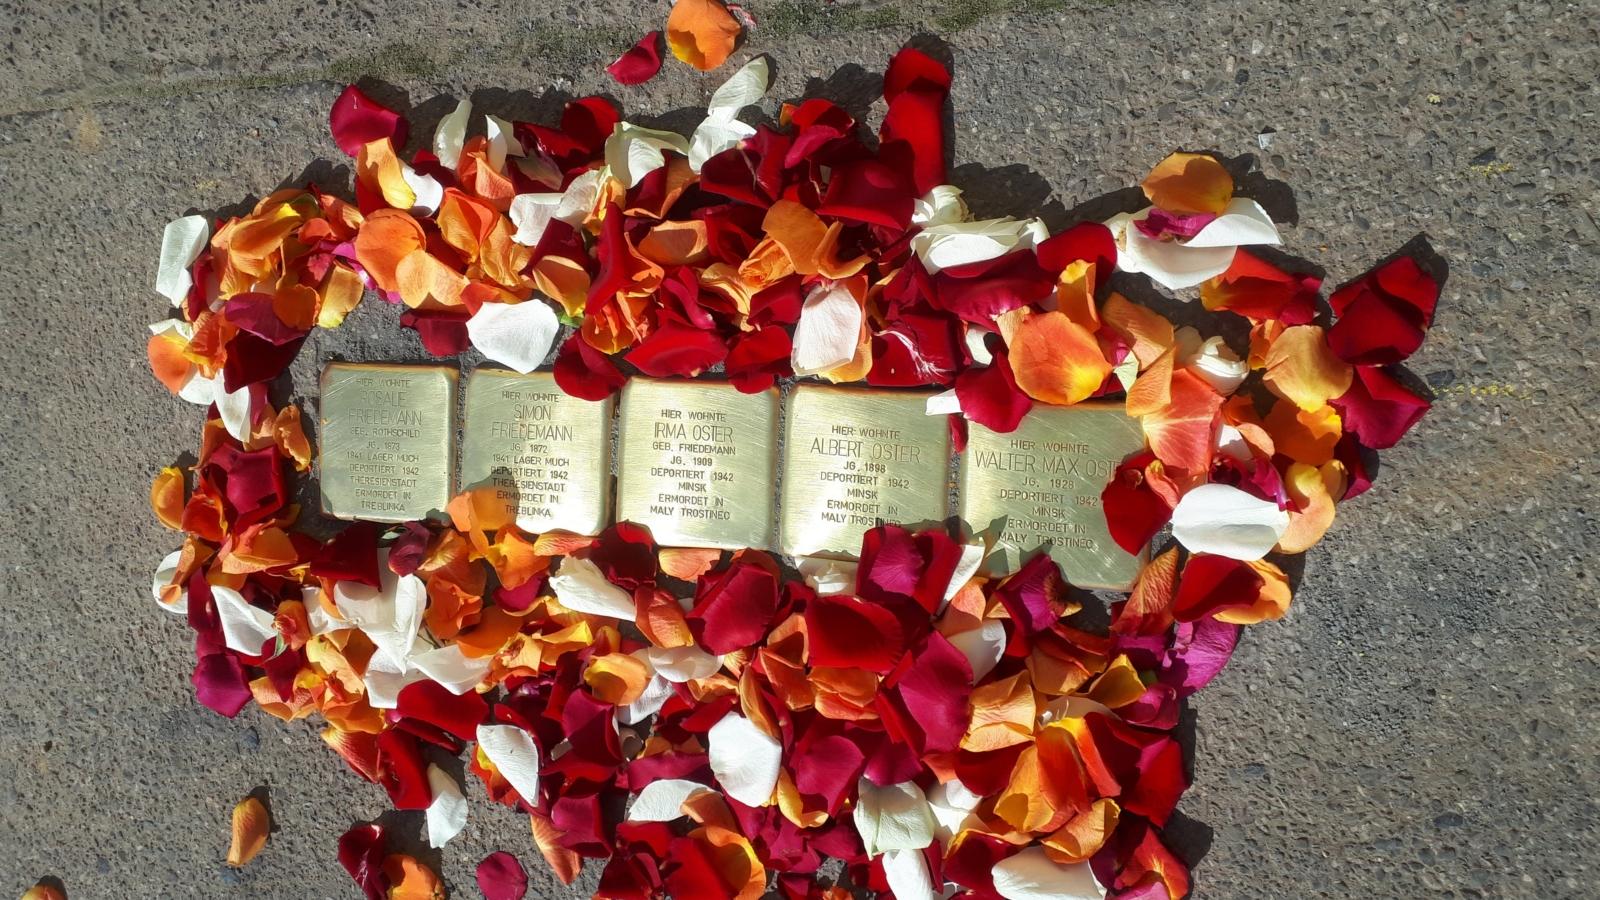 HIER WOHNTE
ROSALIE
FRIEDEMANN
GEB. ROTHSCHILD
JG. 1873
1941 LAGER MUCH
DEPORTIERT 1942
THERESIENSTADT
ERMORDET IN
TREBLINKA
HIER WOHNTE
SIMON
FRIEDEMANN
JG. 1872
1941 LAGER MUCH
DEPORTIERT 1942
THERESIENSTADT
ERMORDET IN
TREBLINKA
HIER WOHNTE
IRMA OSTER
GEB. FRIEDEMANN
JG. 1909
DEPORTIERT 1942
MINSK
ERMORDET IN
MALY TROSTINEC
HIER WOHNTE
ALBERT OSTER
JG. 1898
DEPORTIERT 1942
MINSK
ERMORDET IN
MALY TROSTINEC
HIER WOHNTE
WALTER MAX OSTE
JG. 1928
DEPORTIERT 1942
MINSK
ERMORDET IN
MALY TROSTINEC